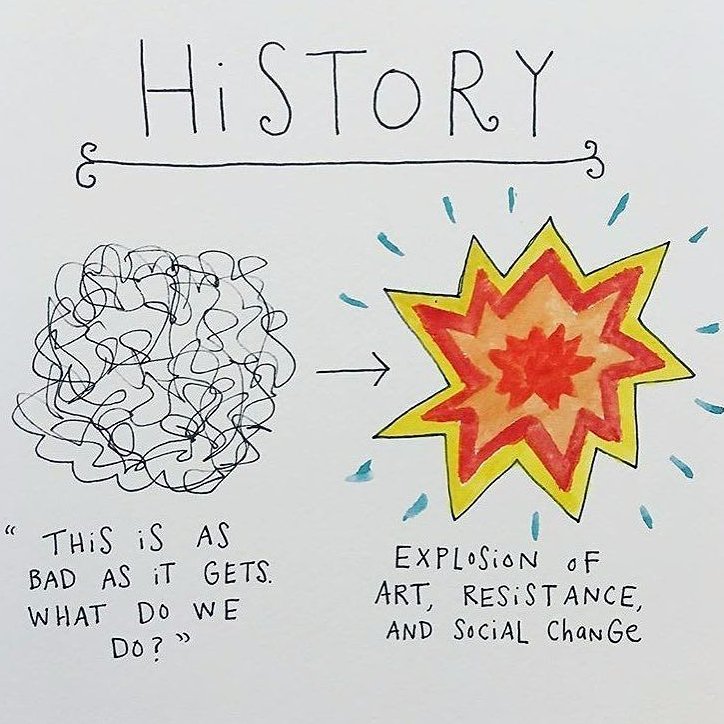 HiSTORY
“ THiS iS AS
BAD AS iT GETS.
WHAT DO WE
DO? ”
EXPLOSION OF
ART, RESiSTANCE,
AND SOCiAL ChANGe